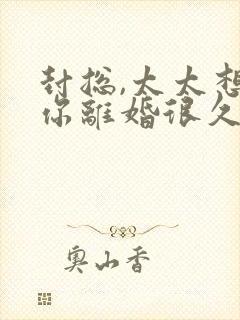 封总,太太想
你離婚很久
奥山香